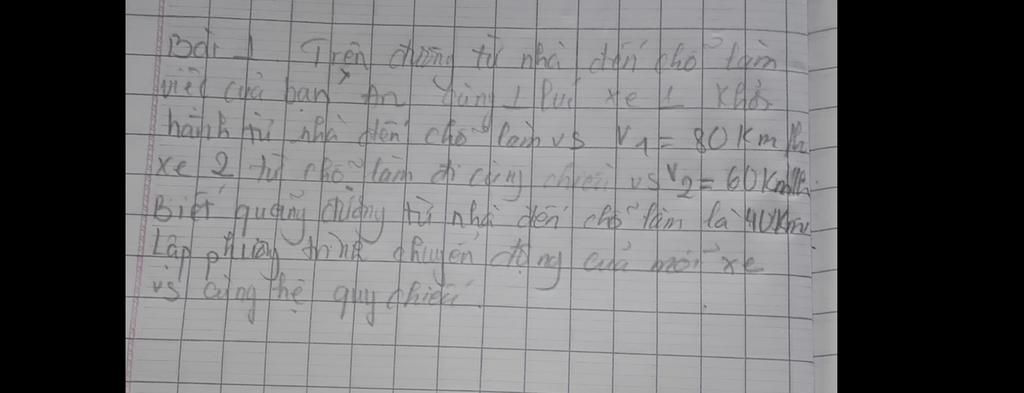 Bài 1 Trên đường từ nhà đến chỗ làm
việc của bạn An cùng 1 lúc xe 1 khởi
hành từ nhà đến chỗ làm vs V1 = 80 Km/h
xe 2 từ chỗ làm đi cùng chiều vs V2 = 60 Km/h.
Biết quãng đường từ nhà đến chỗ làm là 40 Km.
Lập phương trình chuyển động của mỗi xe
vs cùng hệ quy chiếu.